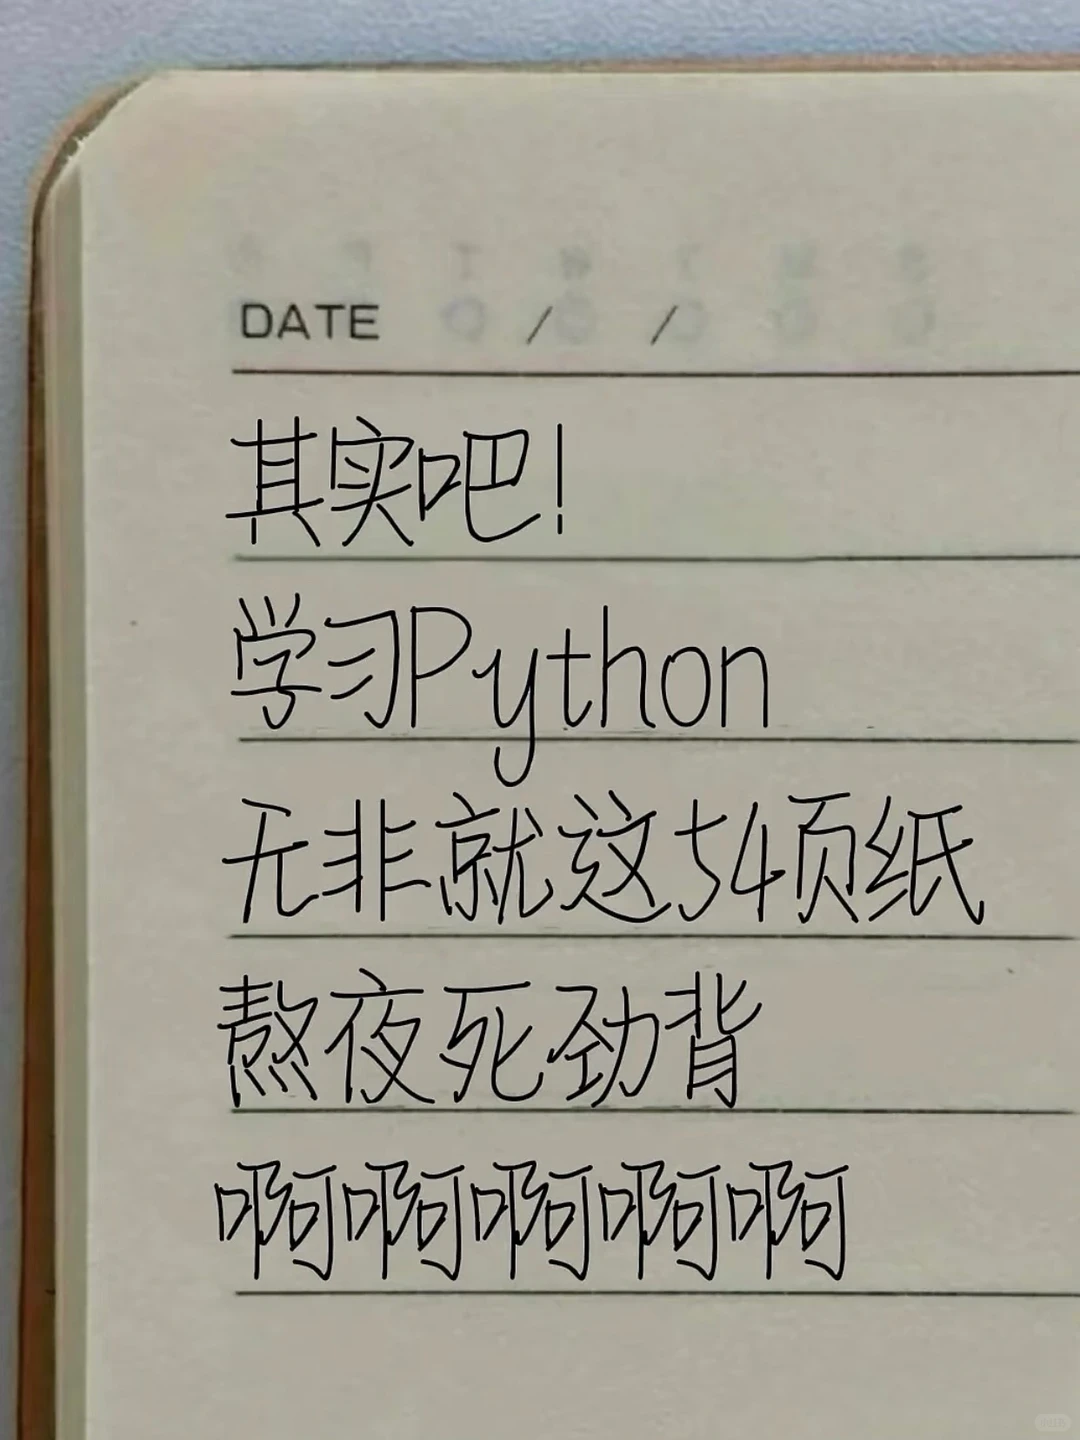 DATE / /
其实吧!
学习Python
无非就这54页纸
熬夜死劲背
啊啊啊啊啊